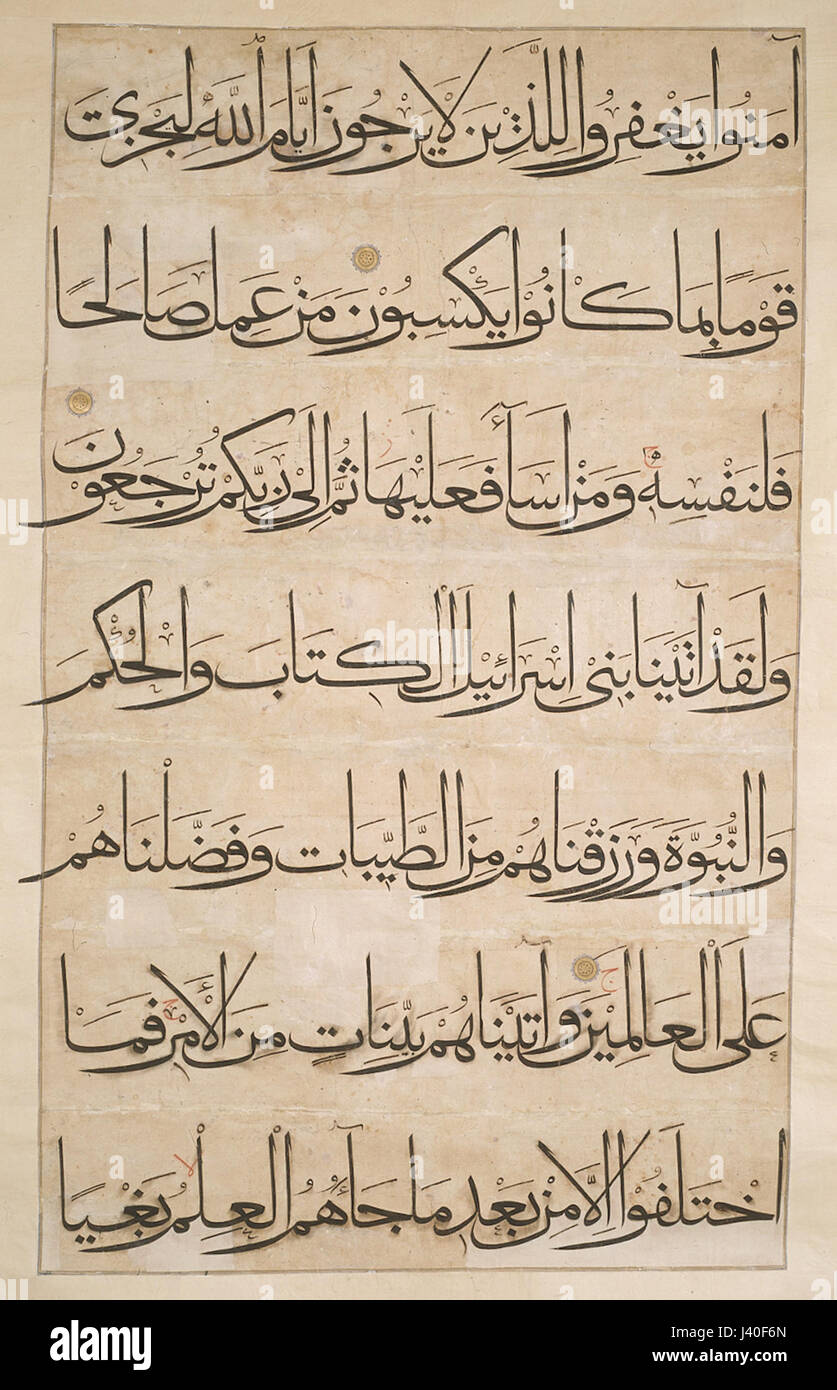 آمَنُوا يَغْفِرُوا لِلَّذِينَ لَا يَرْجُونَ أَيَّامَ اللَّهِ لِيَجْزِيَ
قَوْمًا بِمَا كَانُوا يَكْسِبُونَ مَنْ عَمِلَ صَالِحًا
فَلِنَفْسِهِ وَمَنْ أَسَاءَ فَعَلَيْهَا ثُمَّ إِلَىٰ رَبِّكُمْ تُرْجَعُونَ
وَلَقَدْ آتَيْنَا بَنِي إِسْرَائِيلَ الْكِتَابَ وَالْحُكْمَ
وَالنُّبُوَّةَ وَرَزَقْنَاهُمْ مِنَ الطَّيِّبَاتِ وَفَضَّلْنَاهُمْ
عَلَى الْعَالَمِينَ وَآتَيْنَاهُمْ بَيِّنَاتٍ مِنَ الْأَمْرِ فَمَا
اخْتَلَفُوا إِلَّا مِنْ بَعْدِ مَا جَاءَهُمُ الْعِلْمُ بَغْيًا
alamy stock photo
J40F6N
www.alamy.com